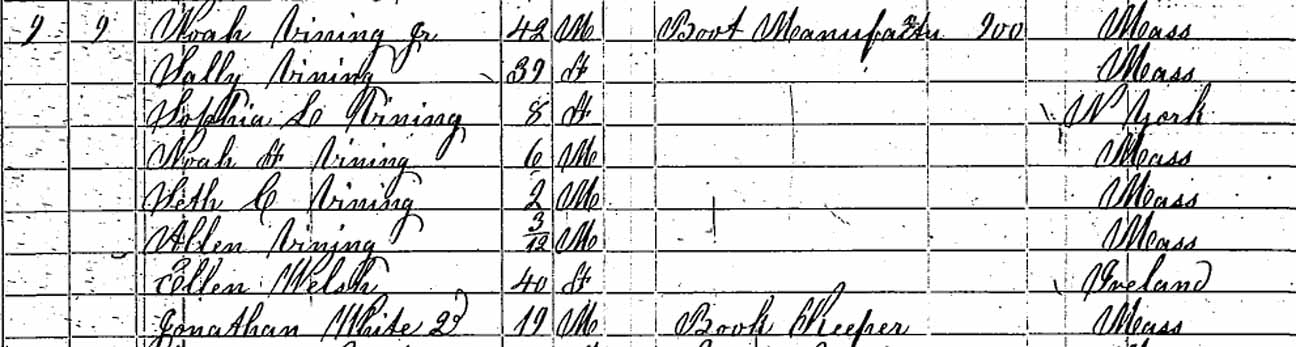 9 9 Noah Vining Jr 42 M Boot Manufactu 900 Mass
Sally Vining 39 F Mass
Sophia L Vining 8 F N York
Noah F Vining 6 M Mass
Seth C Vining 2 M Mass
Allen Vining 3/12 M Mass
Ellen Welsh 40 F Ireland
Jonathan White 2d 19 M Book Keeper Mass